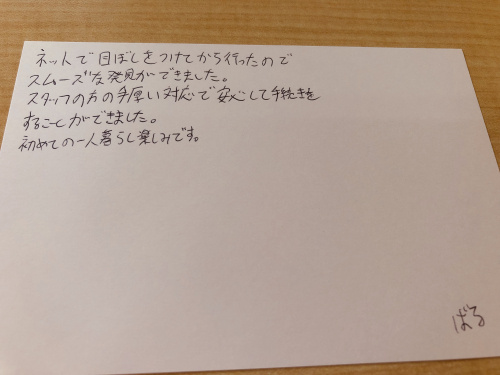 ネットで目ぼしをつけてから行ったので
スムーズな発見ができました。
スタッフの方の手厚い対応で安心して手続きを
することができました。
初めての一人暮らし楽しみです。
ばる